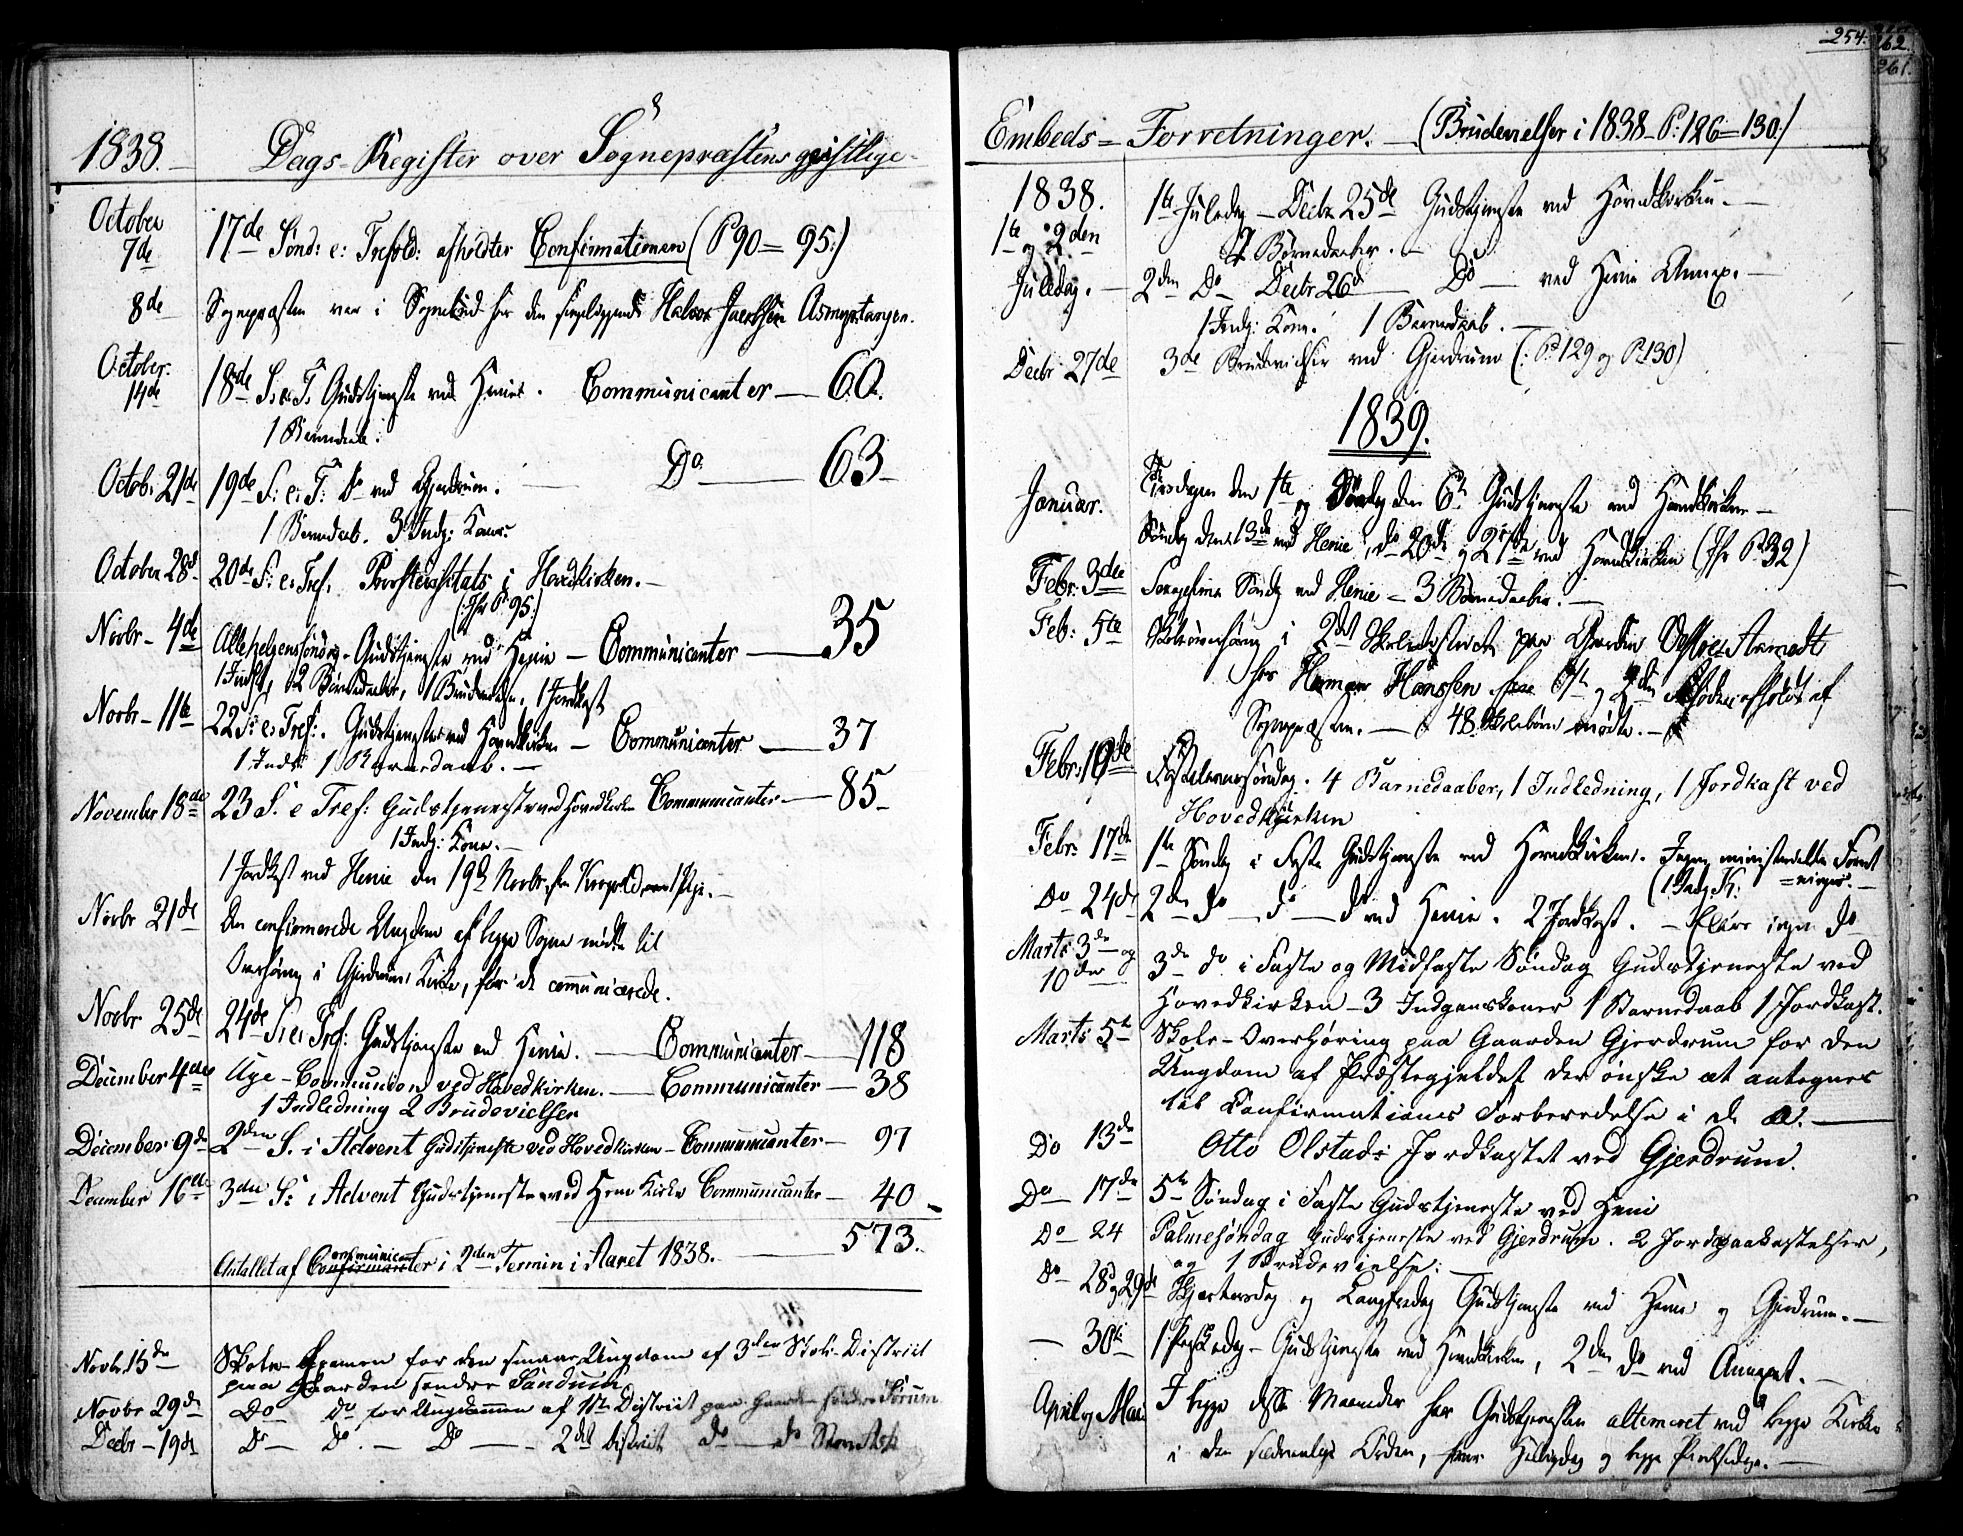 254.
162.
261.
1838.
Dags-Register over Sognepræstens geistlige-
October 7de 17de Sönd: e: Trefold: afholdtes Confirmationen (P 90 = 95:)
8de Sognepræsten var i Sognebud hos den Halvor Asmyrtangen.
October 14de 18de S: e: T: Gudstjeneste ved Henie. Communicanter — 60.
1 Barnedaab.
Octob: 21de 19de S: e: T: Do ved Gjerdrum. — Do — 63 —
1 Barnedaab. 3 Indg: Koner.
October 28de 20de S: e: Tref. Provstevisitats i Hovedkirken. —
(Jfr P. 95:)
Novbr — 4de Allehelgenssöndag — Gudstjeneste ved Henie — Communicanter — 35
1 Indl, 2 Barnedaaber, 1 Brudevielse, 1 Jordkast
Novbr — 11te 22 S: e: Tref: Gudstjeneste ved Hovedkirken — Communicanter — 37
1 Indl: 1 Barnedaab. —
November 18de 23 S. e Tref: Gudstjeneste ved Hovedkirken Communicanter — 85 —
1 Indg: Kone. —
1 Jordkast ved Henie den 19de Novbr,
Novbr 21de Den confirmerede Ungdom af begge Sogne mödte til
Overhöring i Gjerdrums Kirke, för de communicerede.
Novbr 25de 24de S: e: Tref: Gudstjeneste ved Henie. — Communicanter — 118
December 4de Uge-Communion ved Hovedkirken. — Communicanter — 38
1 Indledning 2 Brudevielser
December 9de 2den S. i Advent Gudstjeneste ved Hovedkirken — Communicanter — 97
December 16de 3die S: i Advent Gudstjeneste ved Heni Kirke Communicanter — 40 —
573.
Antallet af Communicanter i 2den Termin i Aaret 1838. —
Novbr 15de Skole-Examen for den smaae Ungdom af 3die Skole-District
paa Gaarden söndre
Novbr 29de Do Do for Ungdommen af 1ste District paa Gaarden söndre
Decbr — 19de Do — Do. — Do — 2det District do — do
Embeds = Forretninger. — (Brudevielser i 1838 — P: 126 = 130:)
1838.
1te og 2den Juledag. — 1te Juledag — Decbr 25de Gudstjeneste ved Hovedkirken. —
2 Barnedaaber. —
2den Do — Decbr 26de — Do — ved Henie Annex. —
1 Indg: Kone. 1 Barnedaab. —
Decbr 27de 3de Brudevielser ved Gjerdrum (: P. 129 og P. 130)
1839.
Januar. Tirsdagen den 1te og Söndag den 6te Gudstjeneste ved Hovedkirken —
Söndag den 13de ved Henie, do 20de og 27de ved Hovedkirken (Jfr P. 32)
Febr: 3die Söndag ved Henie — 3 Barnedaaber. —
Feb: 5te Skoleoverhöring i 2det Skoledistrict paa Gaarden
hos Hansen og 2den afholdt af
Sognepræsten. — 48 Skolebörn mödte. —
Febr: 10de Fastelavenssöndag. 4 Barnedaaber, 1 Indledning, 1 Jordkast ved
Hovedkirken
Febr: 17de 1te Söndag i Faste Gudstjeneste ved Hovedkirken. Ingen ministerielle Forret
= ninger. —
(1 Indg. K:
Do 24de 2den do — do — do ved Henie. 2 Jordkast. — Ellers ingen do
Marts 3de og 10de 3de do i Faste og Midfaste Söndag Gudstjeneste ved
Hovedkirken — 3 Indgangskoner 1 Barnedaab 1 Jordkast.
Marts 5te Skole-Overhöring paa Gaarden Gjerdrum for den
Ungdom af Præstegjeldet der önske at antegnes
til Confirmations Forberedelse i d. A. —
Do 13de Otto Olstads Jordkastet ved Gjerdrum.
Do — 17de 5te Söndag i Faste Gudstjeneste ved Heni
Do — 24 Palmesöndag Gudstjeneste ved Gjerdrum. 2 Jordpaakastelser,
og 1 Brudevielse: —
Do — 28 og 29de Skjertorsdag og Langfredag Gudstjeneste ved Henie og Gjerdrum. —
— 30te 1 Paaskedag — Gudstjeneste ved Hovedkirken, 2den do ved Annexet. —
April og Mai I begge disse Maaneder har Gudstjenesten alterneret ved begge Kirker
i den sædvanlige Orden, hver Helligdag og begge Pintsedage. —